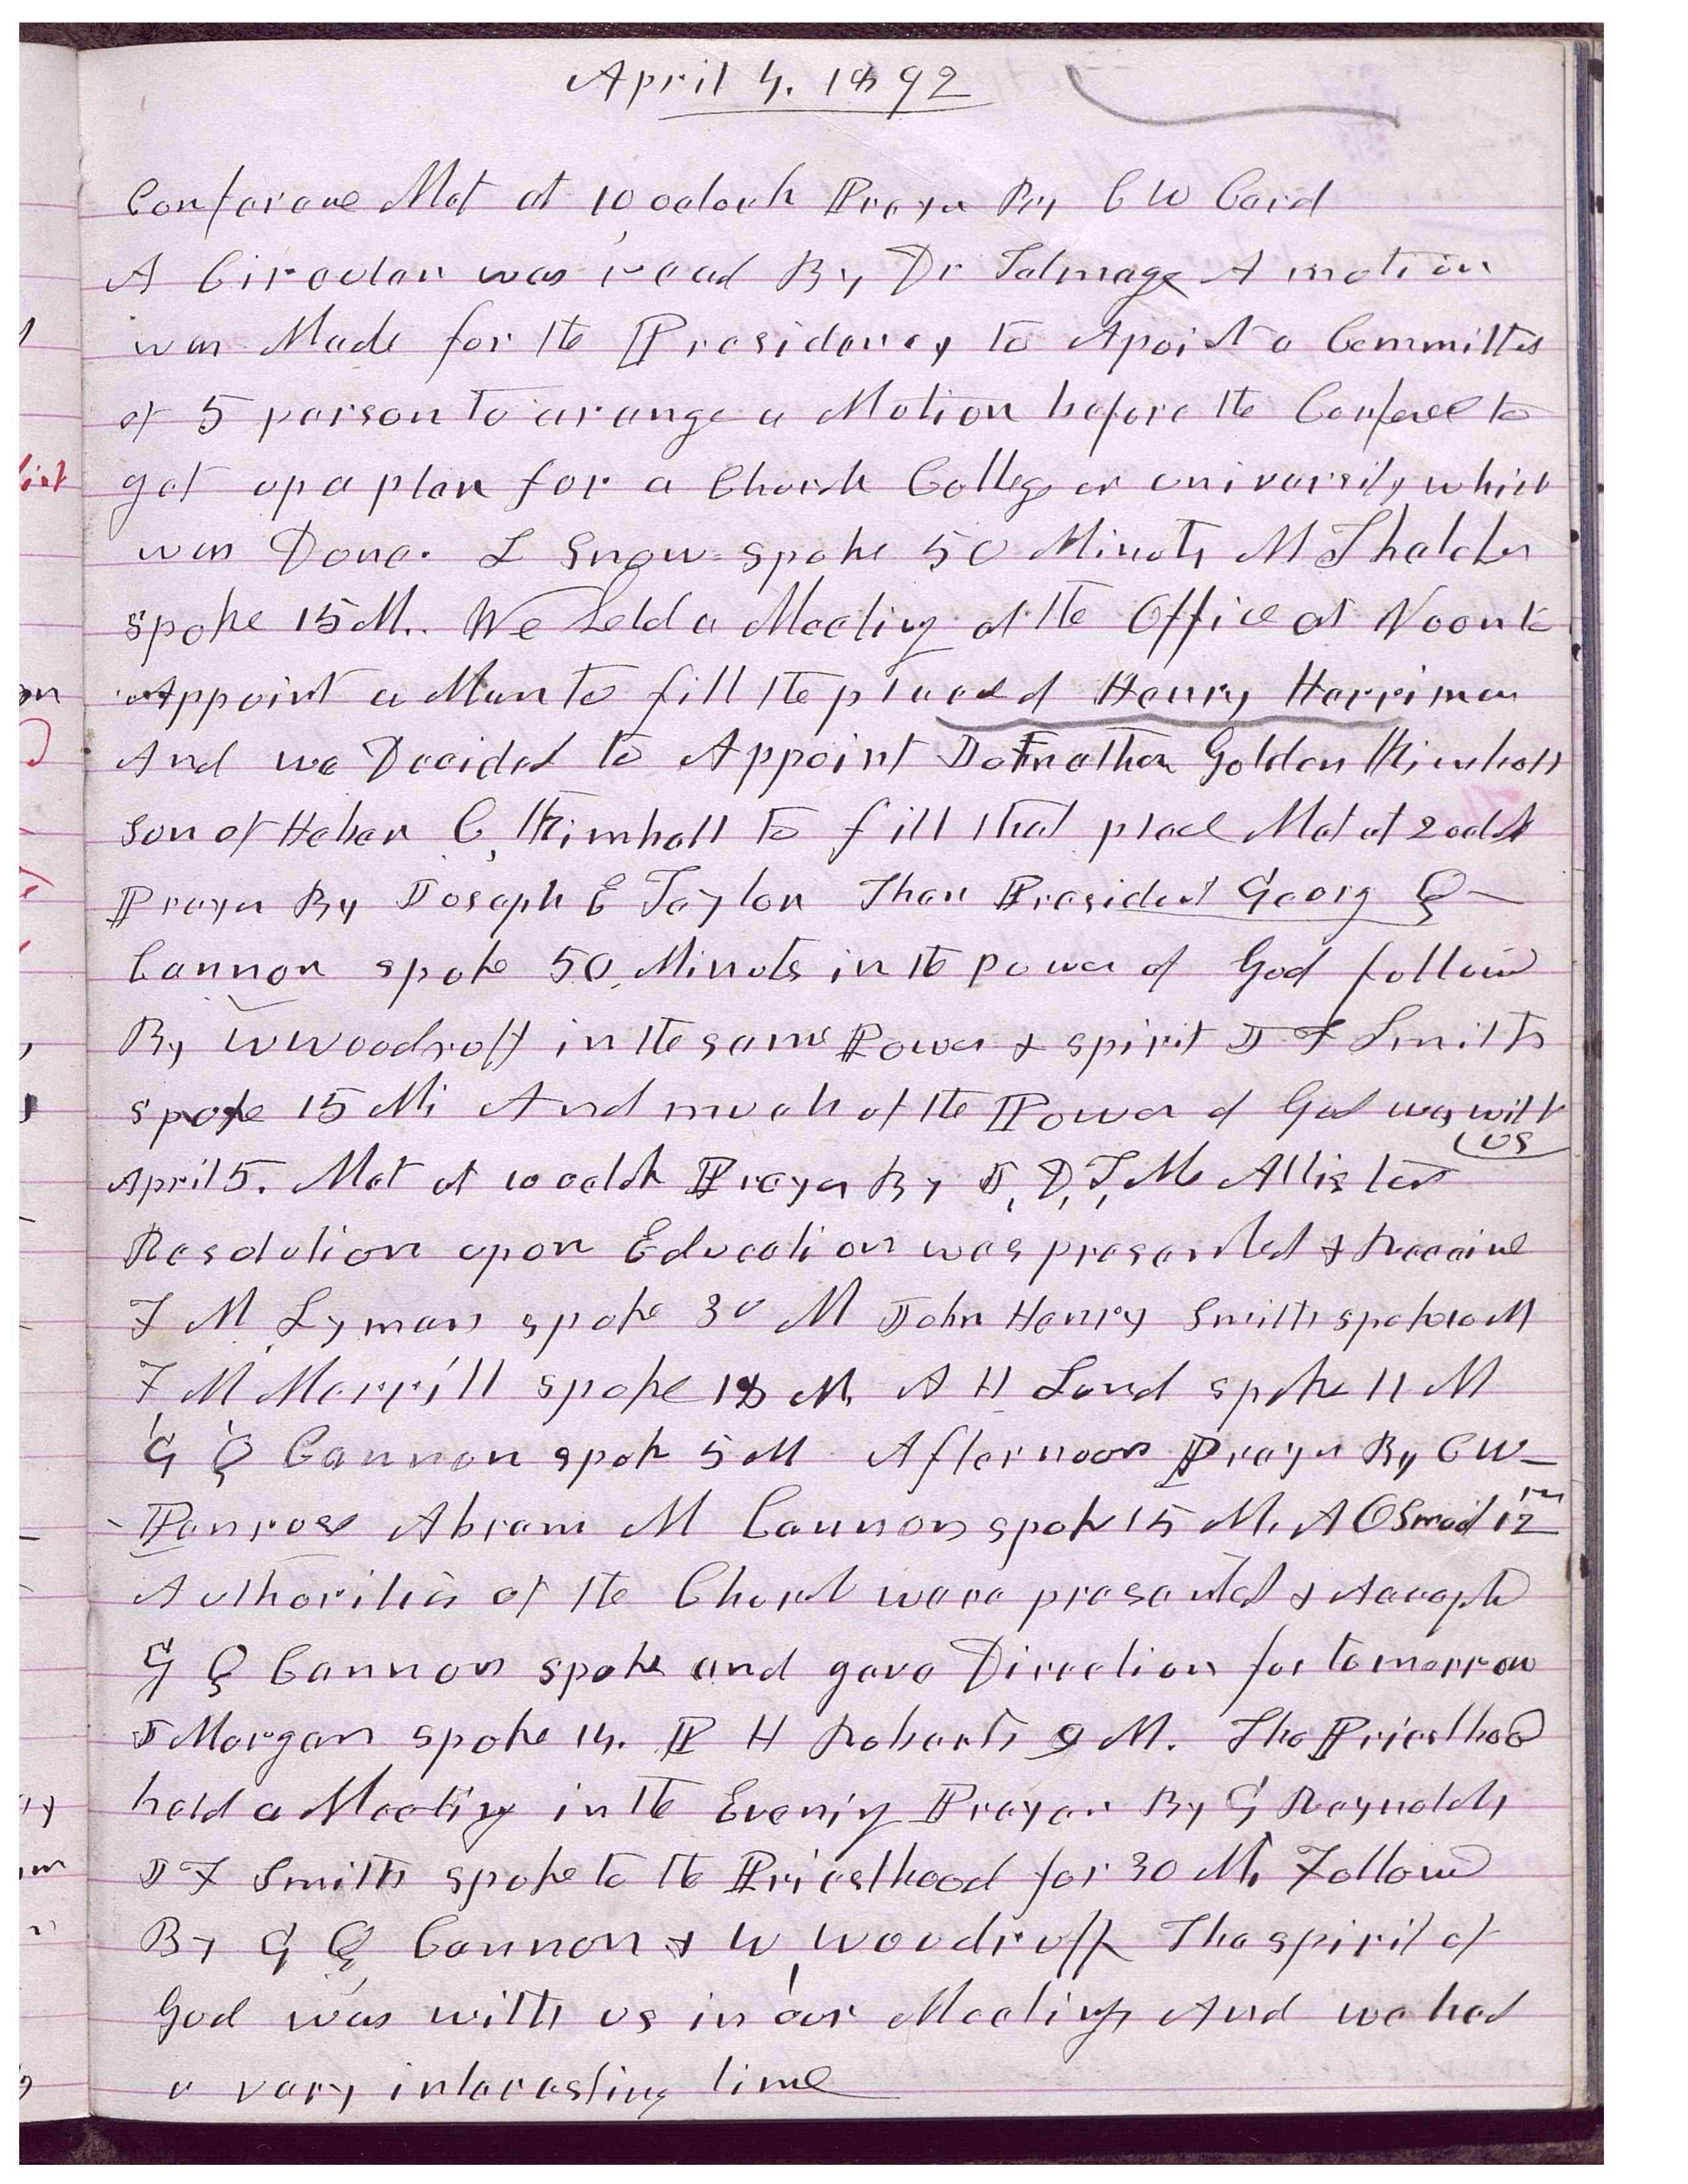 April 4. 1892
Conferance Met at 10 oclock Prayer By C W Card
A Circular was read By Dr Talmage A motion
was Made for the Presidency to Apoint a Committee
of 5 person to arange a Motion before the Conferece to
get up a plan for a Church College or university which
was Done. L Snow spoke 50 Minuts M Thatcher
spoke 15 M. We held a Meeting at the Office at Noon to
Appoint a Man to fill the place of Henry Harriman
And we Decided to Appoint Jonathan Golden Kimball
son of Heber C, Kimball to fill that place Met at 2 oclok
Prayer By Joseph E Taylor Then President Georg Q
Cannon spoke 50 Minuts in the power of God follow
By W Woodruff in the same Power & spirit J F Smith
spoke 15 Mi And much of the Power of God was with
us
April 5. Met at 10 oclok Prayer By J, D, T, Mc Allister
Resolution upon Education was presented & Receive
F M Lyman spoke 30 M John Henry Smith spoke 20 M
F M Merrill spoke 18 M, A H Lund spoke 11 M
G Q Cannon spok 5 M Afternoon Prayer By C W
Penrose Abram M Cannon spok 15 M, A O Smoot 12 m
Authorities of the Church were presented & Accepted
G Q Cannon spoke and gave Direction for tomorrow
J Morgan spoke 14. B H Roberts 9 M. The Priesthood
held a Meeting in the Evening Prayer By G Reynolds
J F Smith spoke to the Priesthood for 30 M, Follow
By G Q Cannon & W, Woodruff The spirit of
God was with us in our Meetings And we had
a very interesting time